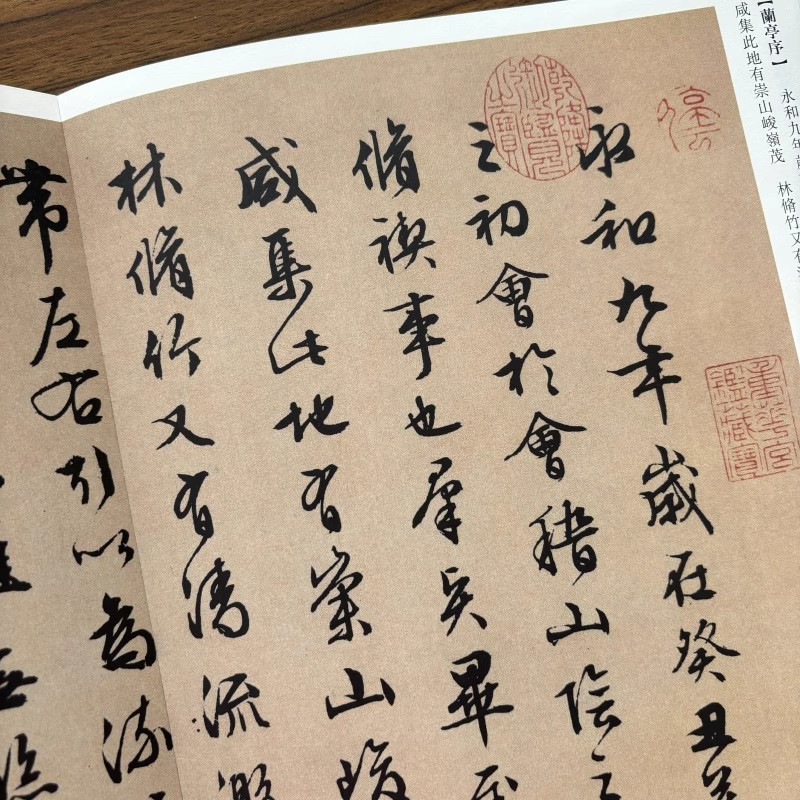 【蘭亭序】 永和九年
咸集此地有崇山峻嶺茂 林脩竹又有
乾隆御覽之寶
重華宮鑑藏寶
永和九年歲在癸丑
之初會於會稽山陰之
脩禊事也羣賢畢至
咸集此地有崇山峻
林脩竹又有清流激
帶左右引以為流